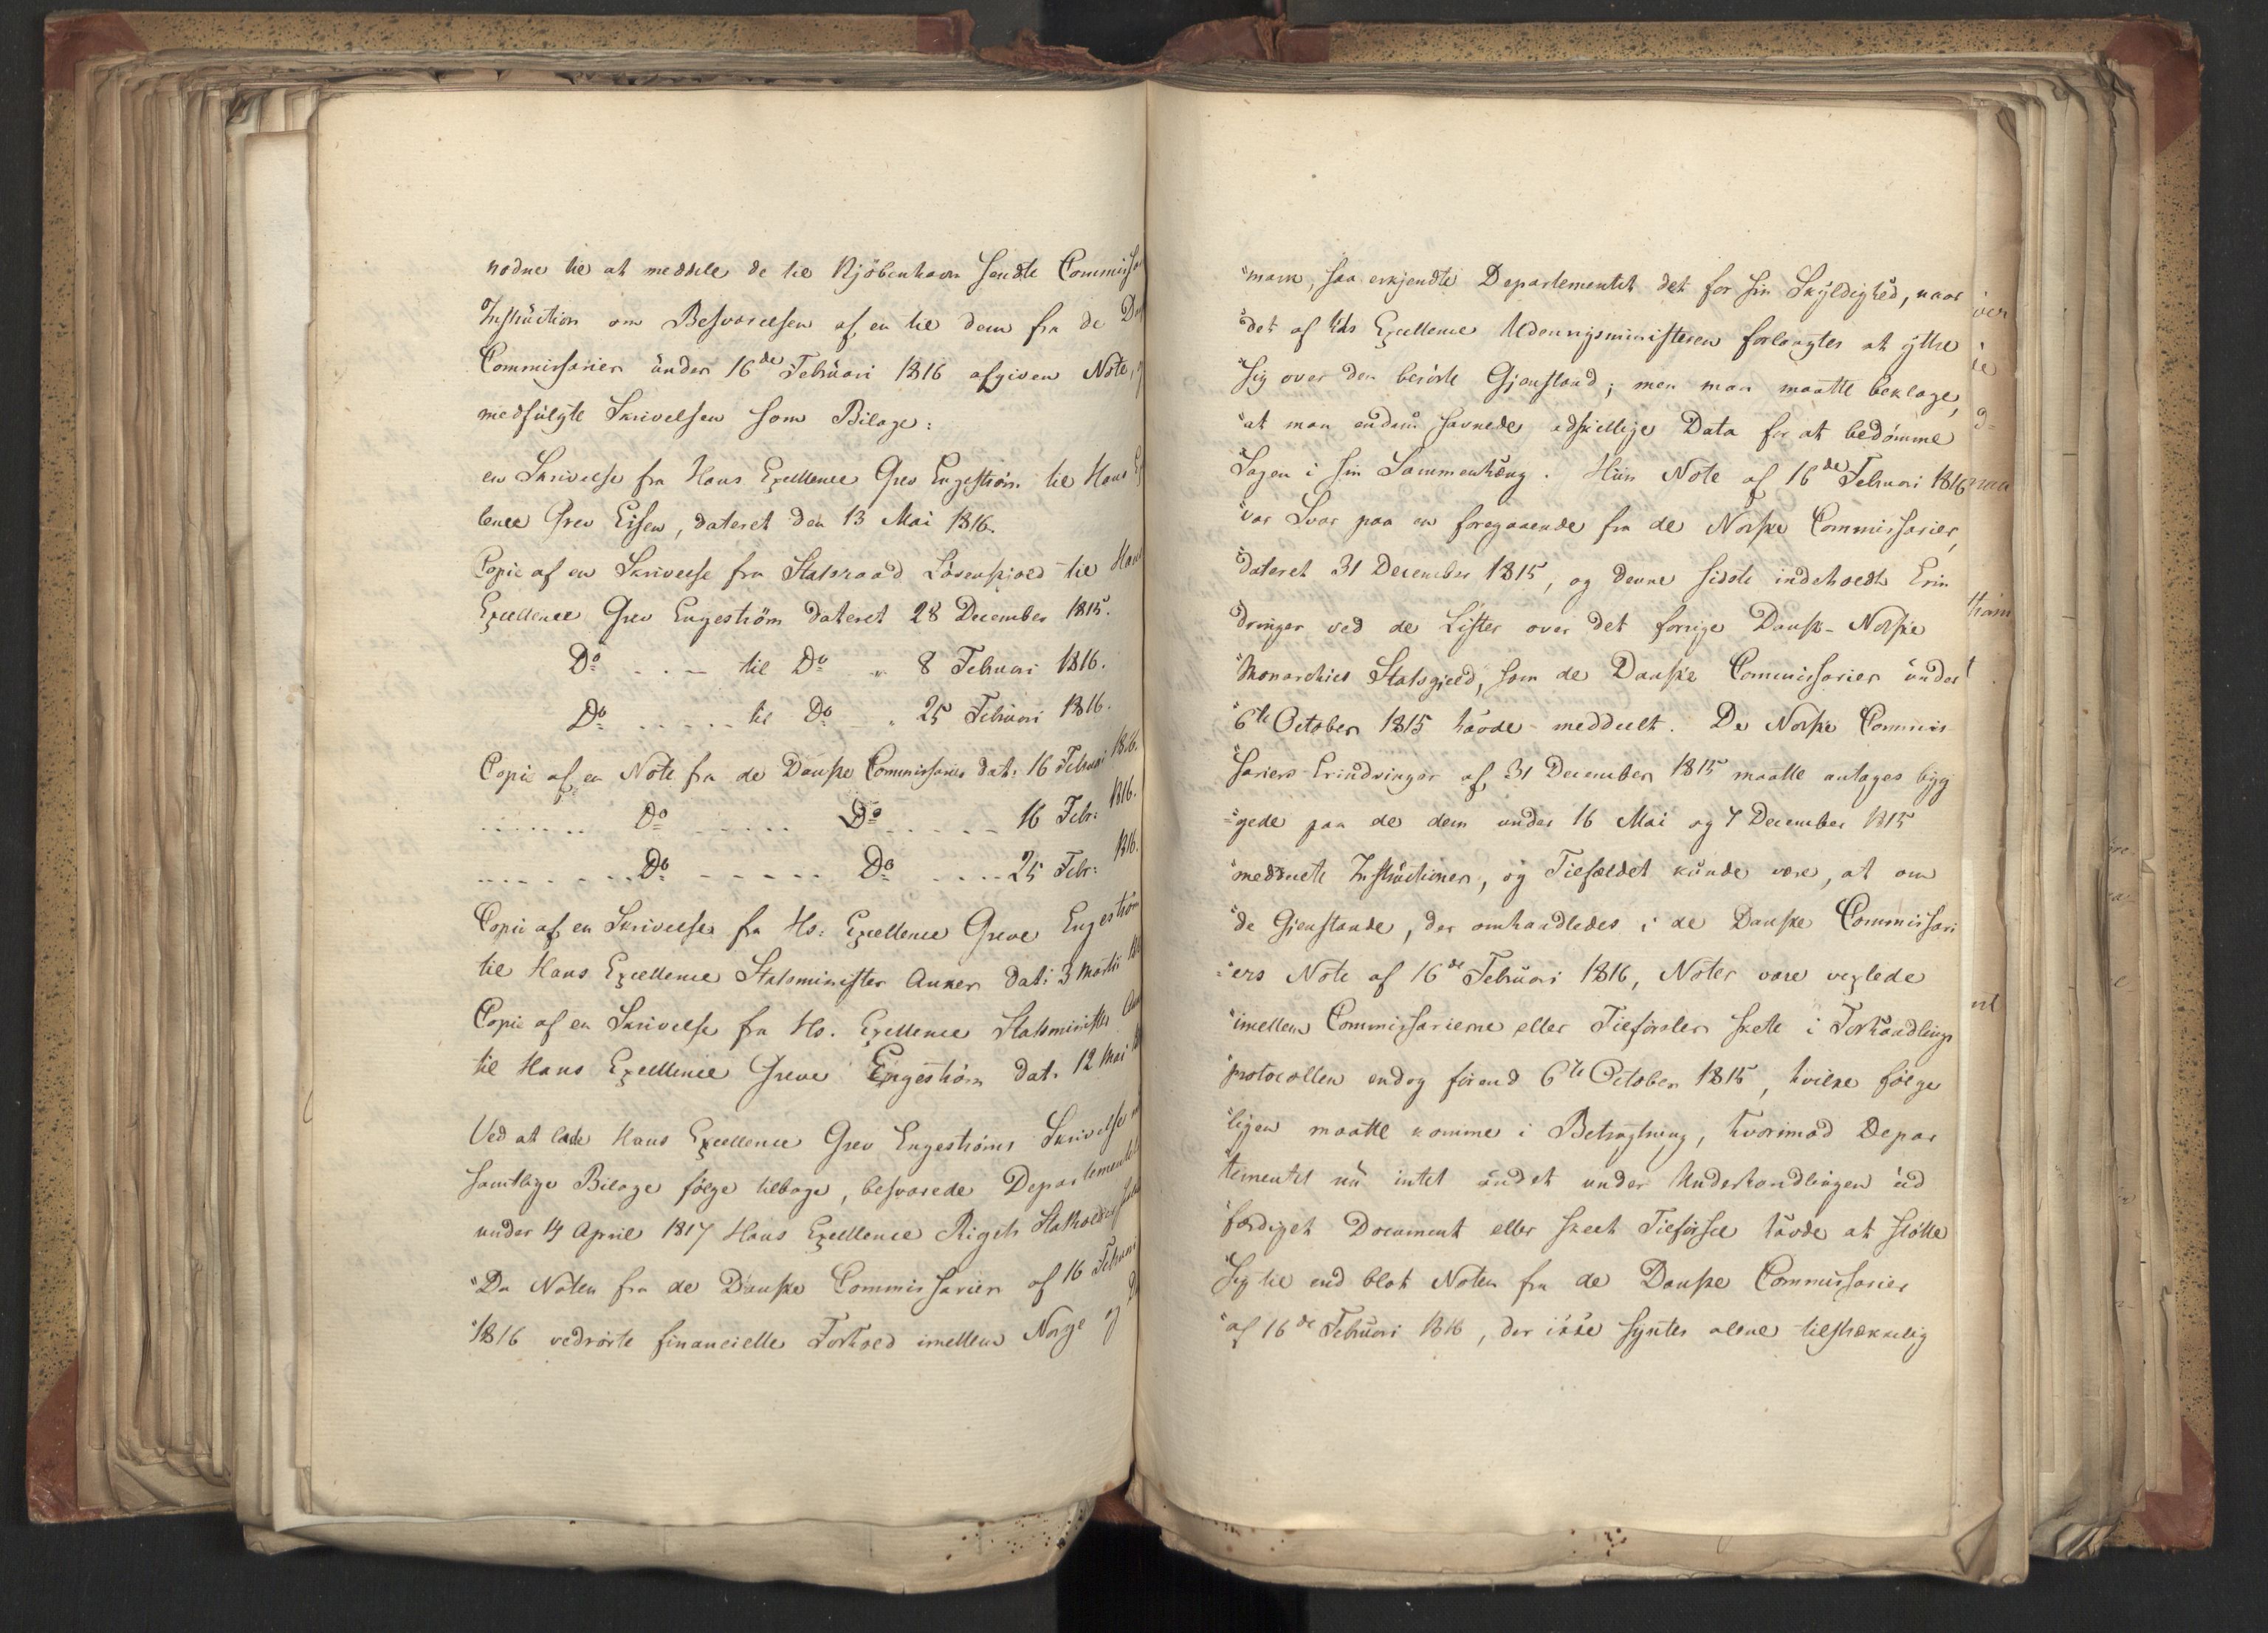 nødne til at meddele de til Kjöbenhavn sendte Commissa
Instruction om Besvarelsen af en til dem fra de
Commissarier under 16de Februari 1816 afgiven Note,
medfulgte Skrivelsen som Bilage:
en Skrivelse fra Hans Excellence Grev Engeström til Hans
lence Grev Essen, dateret den 13 Mai 1816.
Copie af en Skrivelse fra Statsraad Lövenskiold til Hans
Excellence Grev Engeström dateret 28 December 1815.
Do . . - til Do „ 8 Februari 1816.
Do . . . . . til Do „ 25 Februari 1816.
Copie af en Note fra de Danske Commissarier dat: 16 Februari 1816.
. . . . . . . Do . . . . . Do . . . . . 16 Febr: 1816.
. . . . . . . Do . . . . . . Do . . . . . 25 Febr: 1816.
Copie af en Skrivelse fra Hs: Excellence Greve Engeström
til Hans Excellence Statsminister Anker dat: 3 Martii
Copie af en Skrivelse fra Hs. Excellence Statsminister
til Hans Excellence Greve Engeström dat. 12 Mai
Ved at lade Hans Excellence Grev Engeströms Skrivelse
samtlige Bilage følge tilbage, besvarede Departementet
under 14 April 1817 Hans Excellence Rigets Statholder
"Da Noten fra de Danske Commissarier af 16 Februari
"1816 vedrörte financielle Forhold imellem Norge og
"mark, saa erkjendte Departementet det for sin Skyldighed, naar
"det af Hds Excellence Udenrigsministeren forlangtes at yttre
"sig over den berörte Gjenstand; men man maatte beklage,
"at man endnu savnede adskillige Data for at bedömme
"Sagen i sin Sammenhæng. Hiin Note af 16de Februari 1816
"var Svar paa en foregaaende fra de Norske Commissarier,
"dateret 31 December 1815, og denne sidste indeholdt Erin
"dringer ved de Lister over det forrige Dansk-Norske
"Monarchies Statsgjeld, som de Danske Commissarier under
"6te October 1815 havde meddeelt. De Norske Commis
"sariers Erindringer af 31 December 1815 maatte antages byg
"gede paa de dem under 16 Mai og 7 December 1815
"meddeelte Instructioner, og Tilfældet kunde være, at om
"de Gjenstande, der omhandledes i de Danske Commissari
"ers Note af 16de Februari 1816, Noter vare vexlede
"imellem Commissarierne eller Tilförsler skete i Forhandlings
"protocollen endog förend 6te October 1815, hvilke fölge
"ligen maatte komme i Betragtning, hvorimod Depar
"tementet nu intet andet under Underhandlingen ud
"færdiget Document eller skeet Tilförsel havde at stötte
"sig til end blot Noten fra de Danske Commissarier
"af 16de Februari 1816, der ikke syntes alene tilstrækkelig